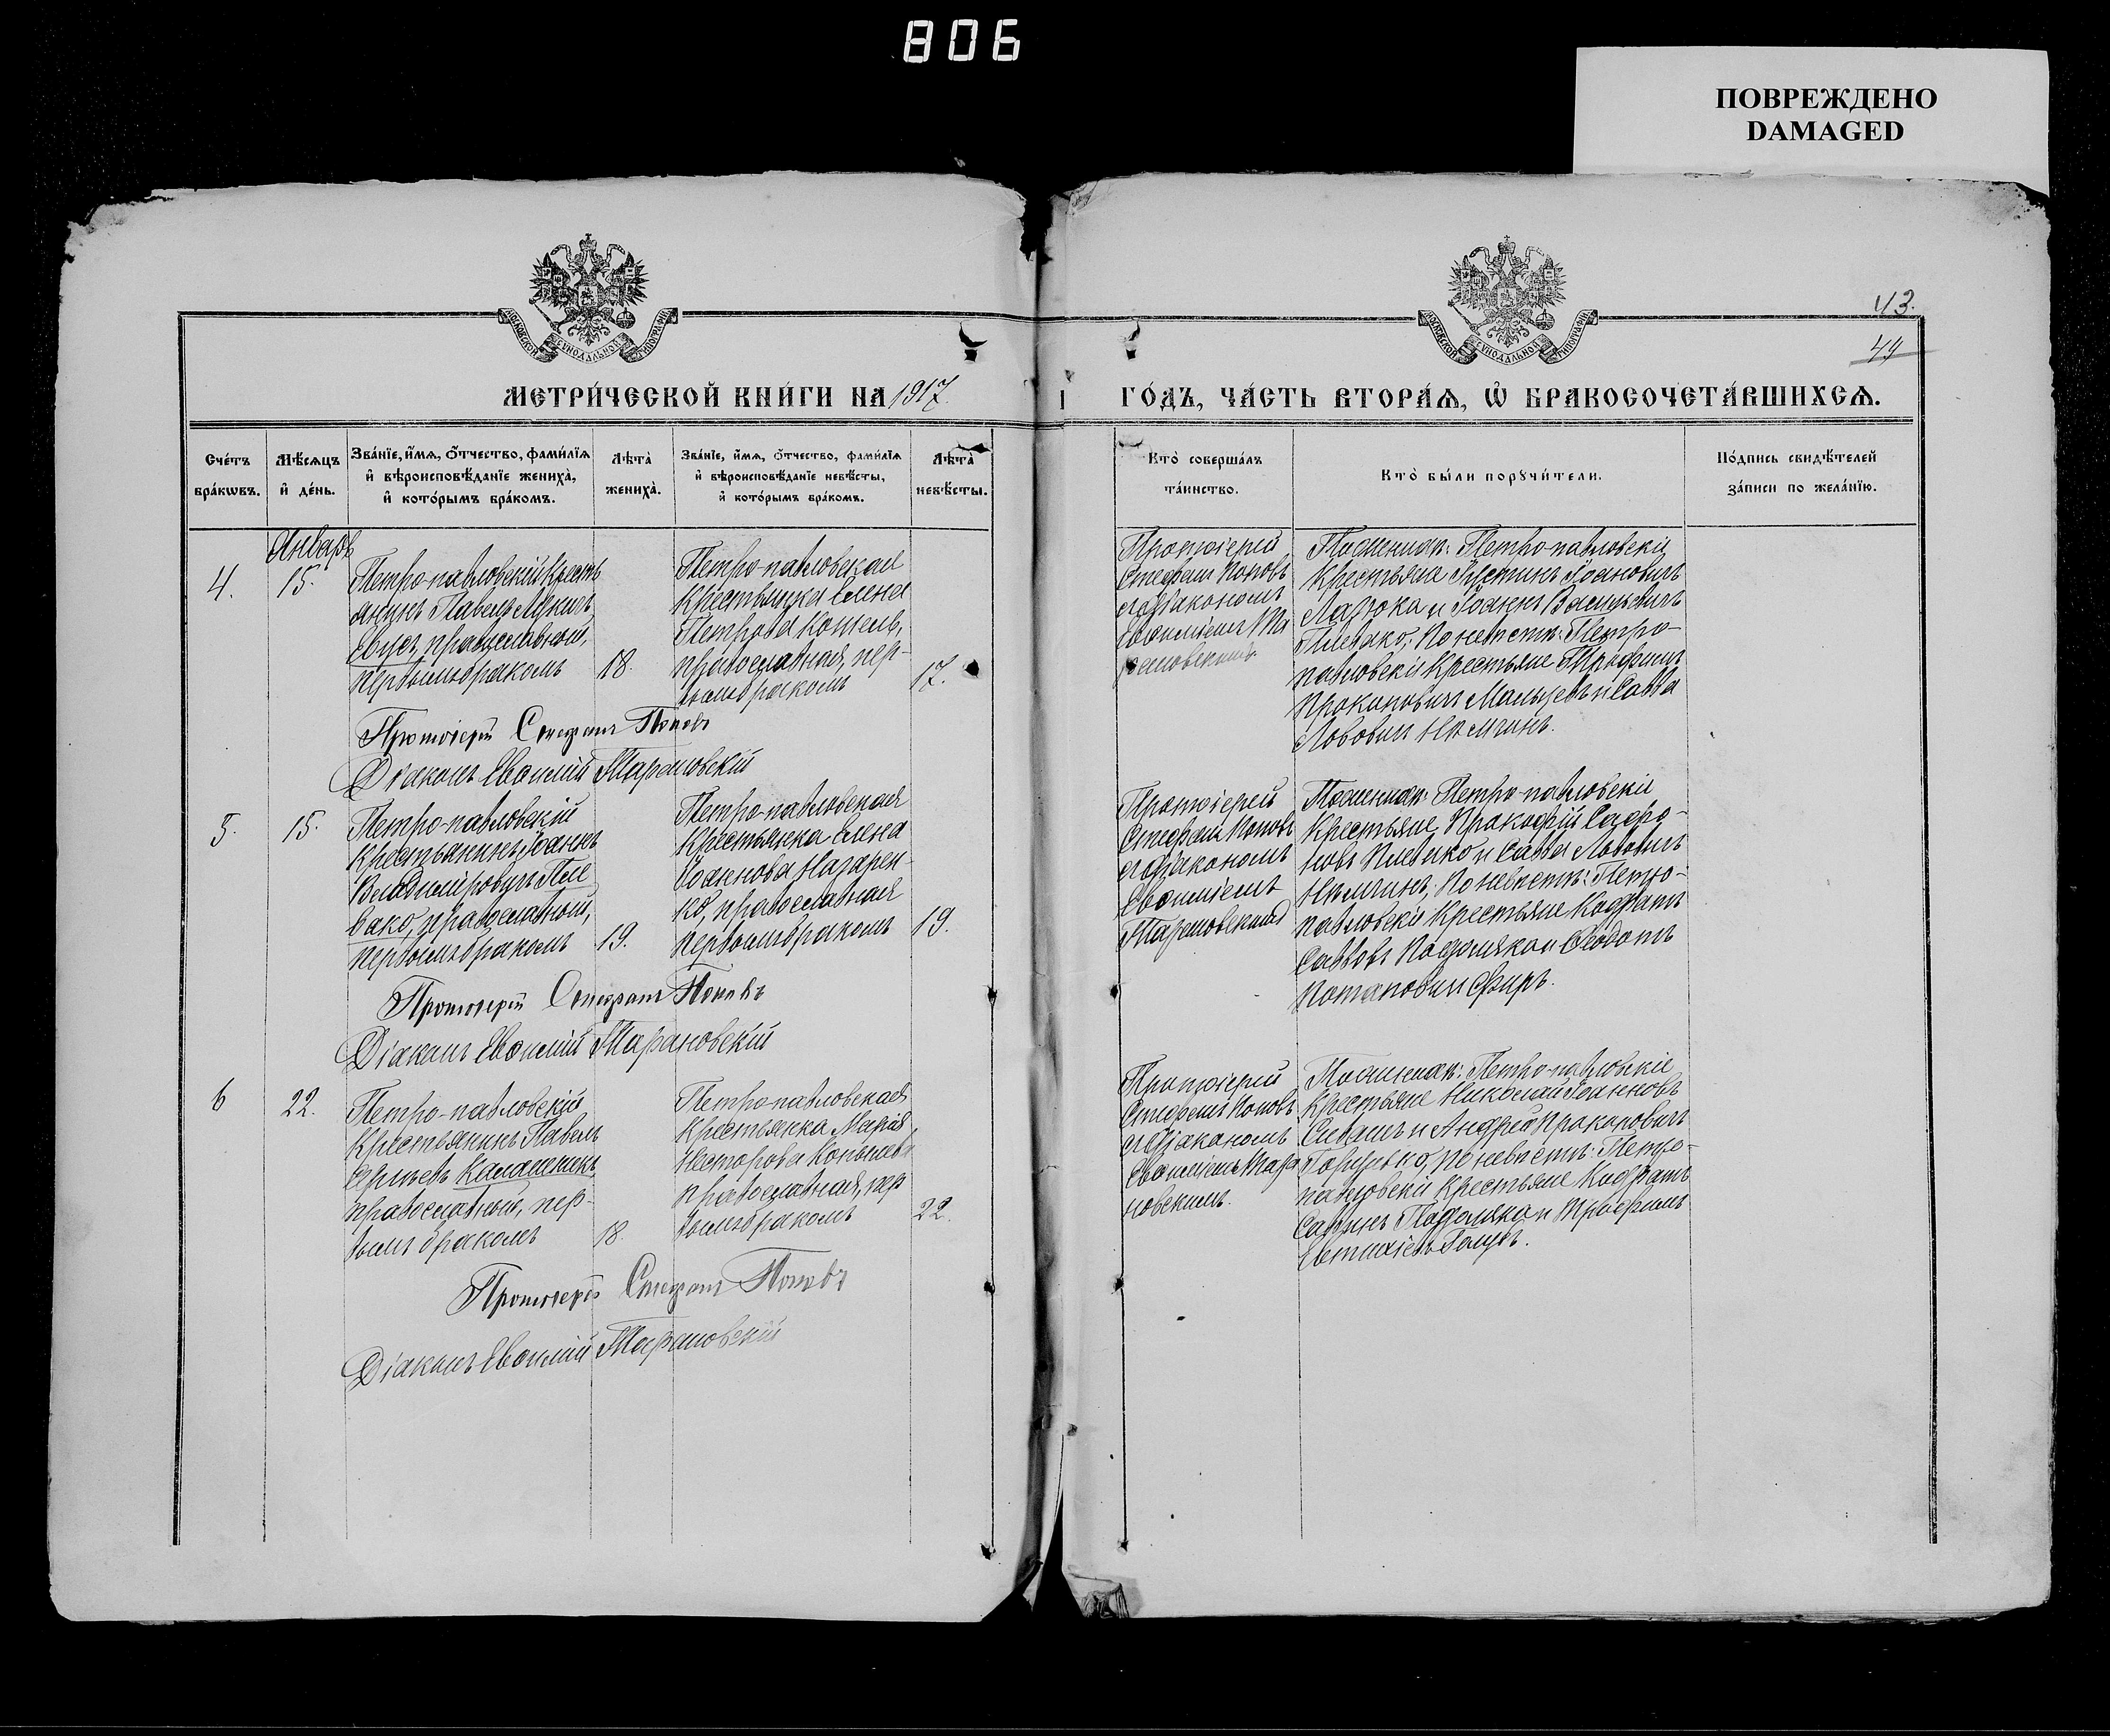 806
ПОВРЕЖДЕНО
DAMAGED
43.
44
МОСКОВСКОЙ СУНОДАЛЬНОЙ ТИПОГРАФІИ
МОСКОВСКОЙ СУНОДАЛЬНОЙ ТИПОГРАФІИ
МЕТРИ́ЧЕСКОЙ КНИ́ГИ НА 1917.
ГО́ДЪ, ЧА́СТЬ ВТОРА́Ѧ, Ѡ҆ БРАКОСОЧЕТА́ВШИХСѦ.
Сче́тъ
бра́кѡвъ.
Мѣ́сѧцъ
и҆ де́нь.
Зва́нїе, и҆́мѧ, ѻ҆́тчество, фами́лїѧ
и҆ вѣроисповѣ́данїе жениха̀,
и҆ кото́рымъ бра́комъ.
Лѣта̀
жениха̀.
Зва́нїе, и҆́мѧ, ѻ҆́тчество, фами́лїѧ
и҆ вѣроисповѣ́данїе невѣ́сты,
и҆ кото́рымъ бра́комъ.
Лѣта̀
невѣ́сты.
Кто̀ соверша́лъ
та́инство.
Кто̀ бы́ли порꙋчи́тели.
По́дпись свидѣ́телей
за́писи по жела́нїю.
Январь
4.
15.
Петро-павловскій кресть
янинъ Павелъ
православный,
первымъ бракомъ
18.
Петро-павловская
крестьянка Елена
Петрова Котель,
православная, пер-
вымъ бракомъ
17.
Протоіерей
Стефанъ Поповъ
съ діакономъ
Евѳиміемъ Та
рановскимъ
По женихѣ: Петро-павловскіе
крестьяне Іустинъ Іоановичъ
Лазюка и Іоаннъ Васильевичъ
Плевако; по невѣстѣ: Петро-
павловскіе крестьяне Трофимъ
Прокоповичъ Мальцевъ и Савва
Львовичъ Нѣмчинъ.
Протоіерей Стефанъ Поповъ
Діаконъ Евѳимій Тарановскій
5.
15.
Петро-павловскій
крестьянинъ Іоаннъ
Владиміровичъ Пле
вако, православный,
первымъ бракомъ
19.
Петро-павловская
крестьянка Елена
Іоаннова Назарен-
ко, православная
первымъ бракомъ
19.
Протоіерей
Стефанъ Поповъ
съ діакономъ
Евѳиміемъ
Тарановскимъ
По женихѣ: Петро-павловскіе
крестьяне, Прокофій Сафро-
новъ Плевако и Савва Львовичъ
Нѣмчинъ; по невѣстѣ: Петро-
павловскіе крестьяне Кодратъ
Саввовъ Подоляка и Ѳеодотъ
Потаповичъ Фиръ.
Протоіерей Стефанъ Поповъ
Діаконъ Евѳимій Тарановскій
6
22.
Петро-павловскій
крестьянинъ Павелъ
Сергѣевъ Калашникъ
православный, пер-
вымъ бракомъ
18.
Петро-павловская
крестьянка Марія
Несторова Копылова
православная, пер
вымъ бракомъ
22.
Протоіерей
Стефанъ Поповъ
съ діакономъ
Евѳиміемъ Тара
новскимъ.
По женихѣ: Петро-павловскіе
крестьяне Николай Іоанновъ
Сивашъ и Андрей Прокоповичъ
по невѣстѣ: Петро-
павловскіе крестьяне Кодратъ
Саввинъ Подоляка и
Евтихіевъ Голубъ.
Протоіерей Стефанъ Поповъ
Діаконъ Евѳимій Тарановскій